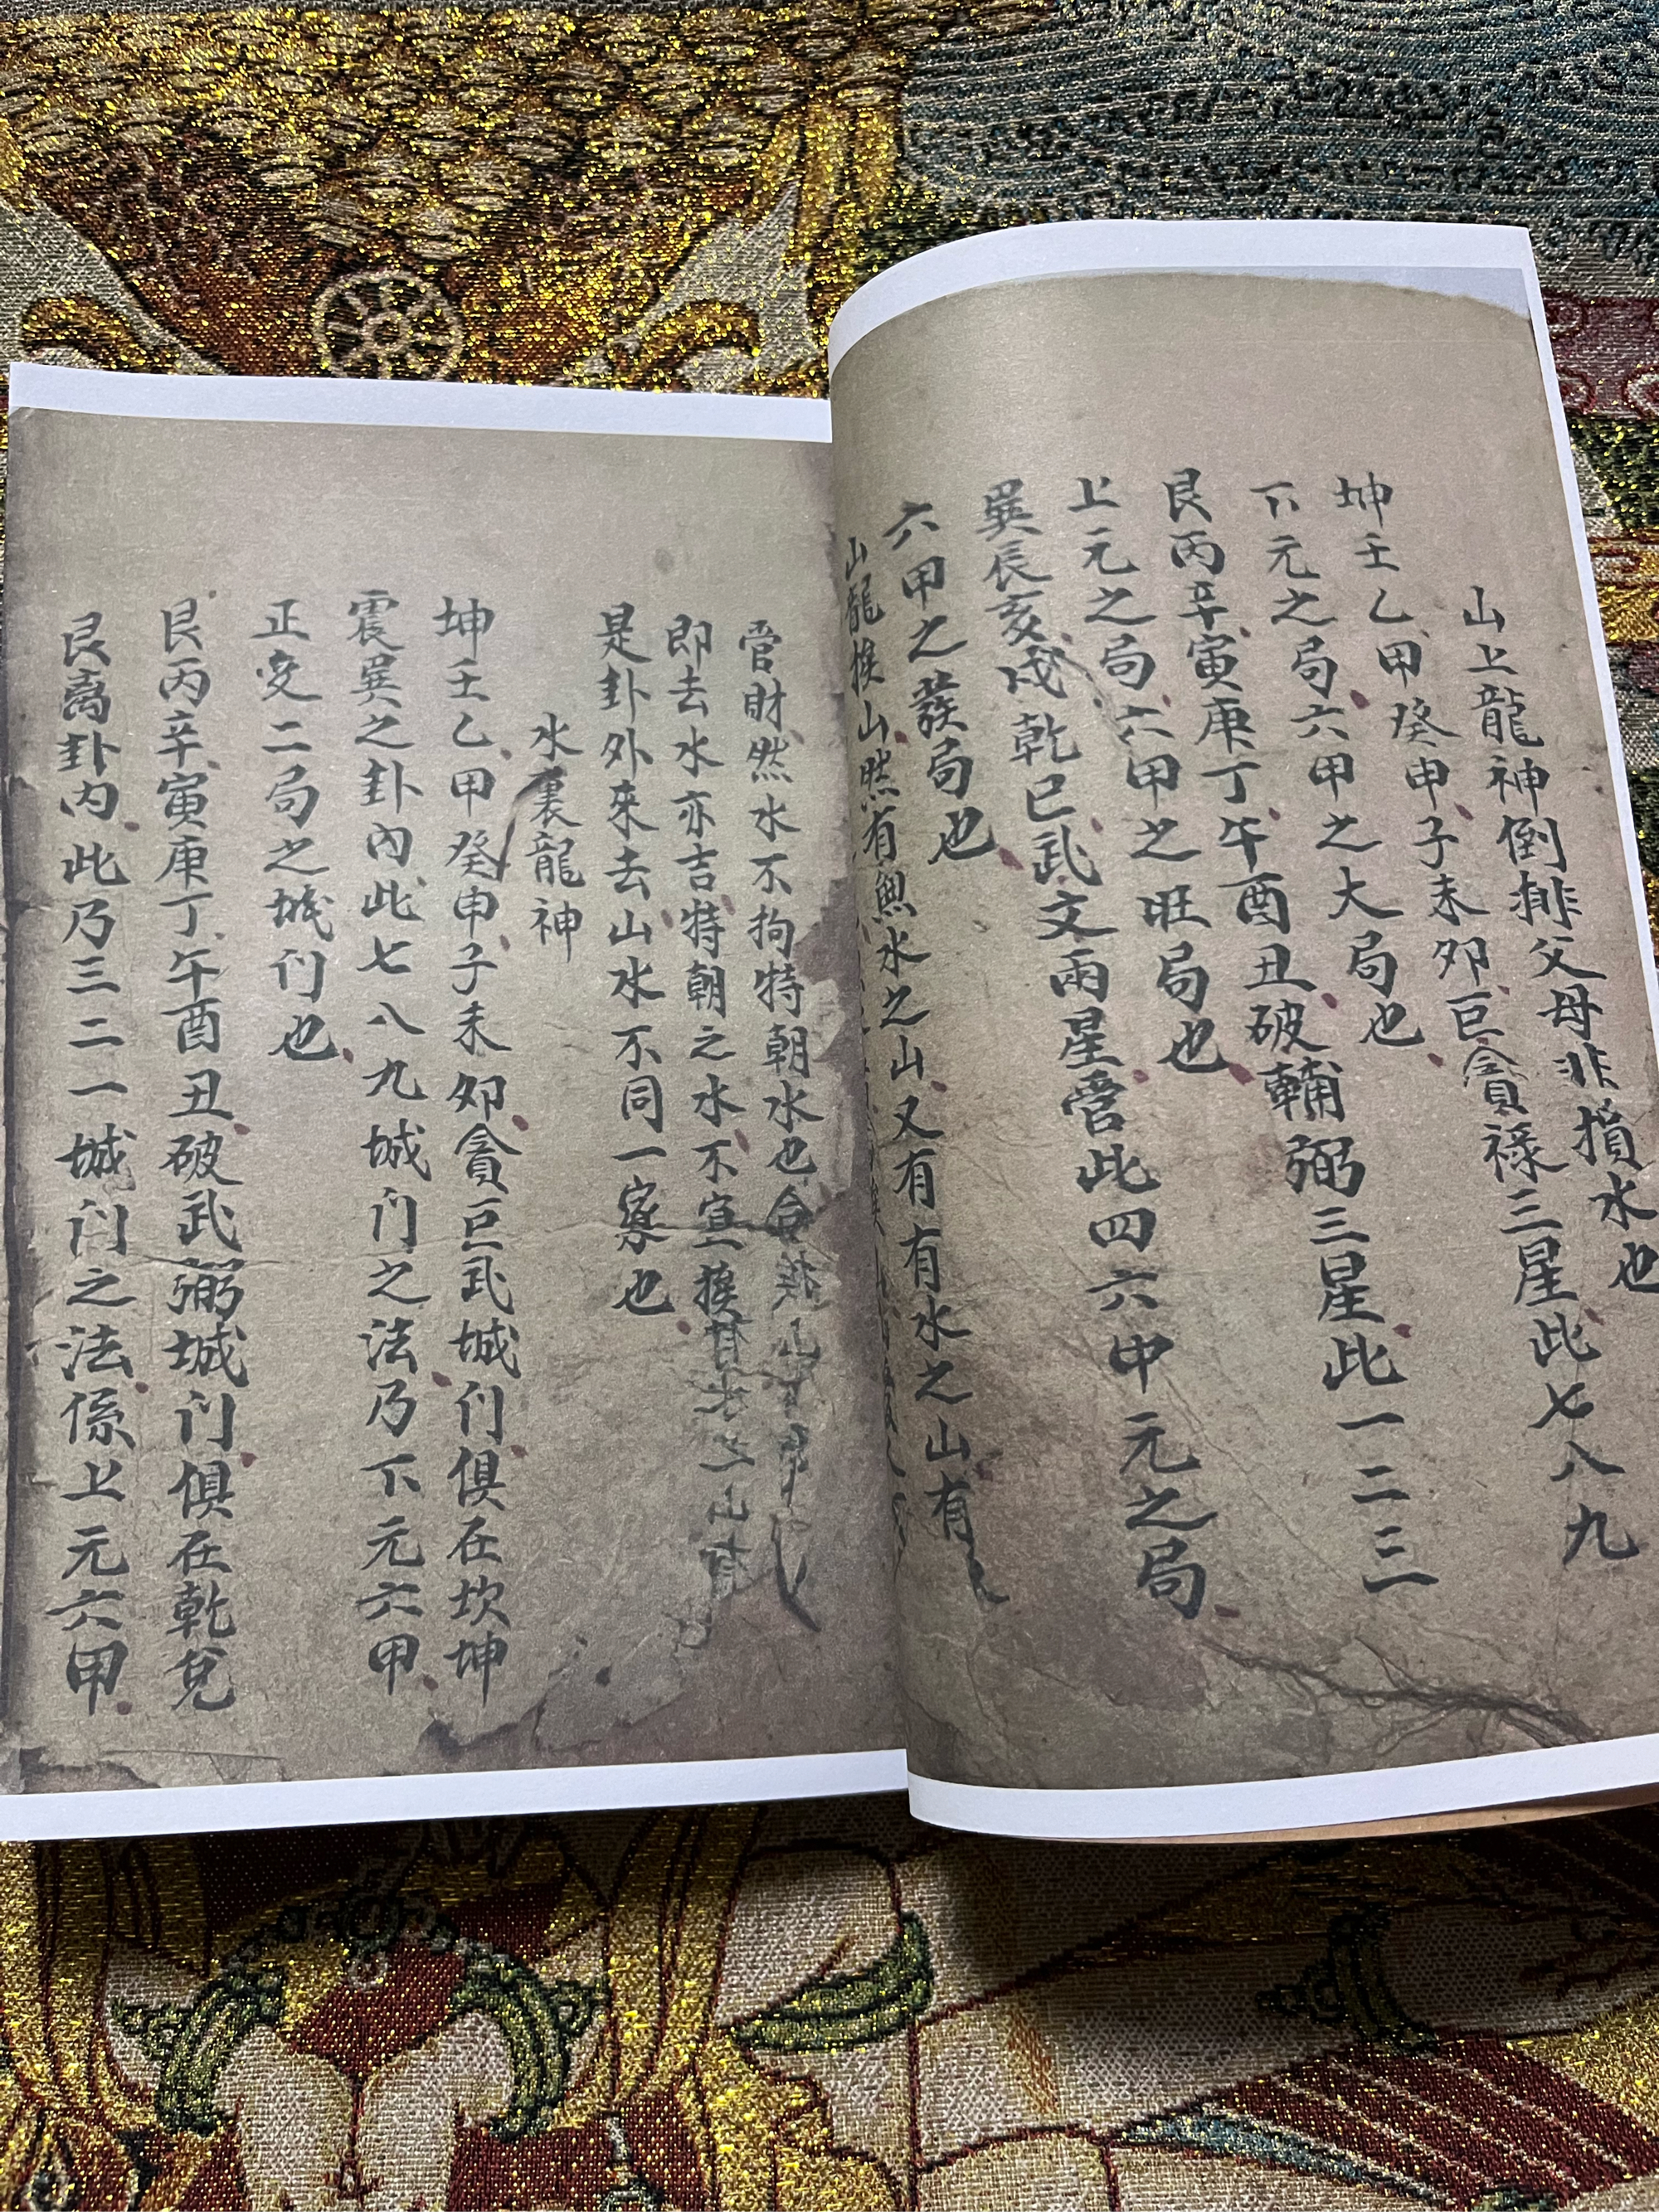 山上龍神倒排父母非損水也
坤壬乙甲癸申子未夘巨貪祿三星此七八九
下元之局六甲之大局也
艮丙辛寅庚丁午酉丑破輔弼三星此一二三
上元之局六甲之旺局也
巽辰亥戌乾巳武文兩星管此四六中元之局
六甲之蕟局也
山龍挨山然有無水之山又有有水之山有
管財然水不拘特朝水也合
即去水亦吉特朝之水不宜挨
是卦外來去山水不同一察也
水裏龍神
坤壬乙甲癸申子未夘貪巨武城门俱在坎坤
震巽之卦內此七八九城门之法乃下元六甲
正变二局之城们也
艮丙辛寅庚丁午酉丑破武弼城门俱在乾兌
艮离卦内此乃三二一城门之法係上元六甲